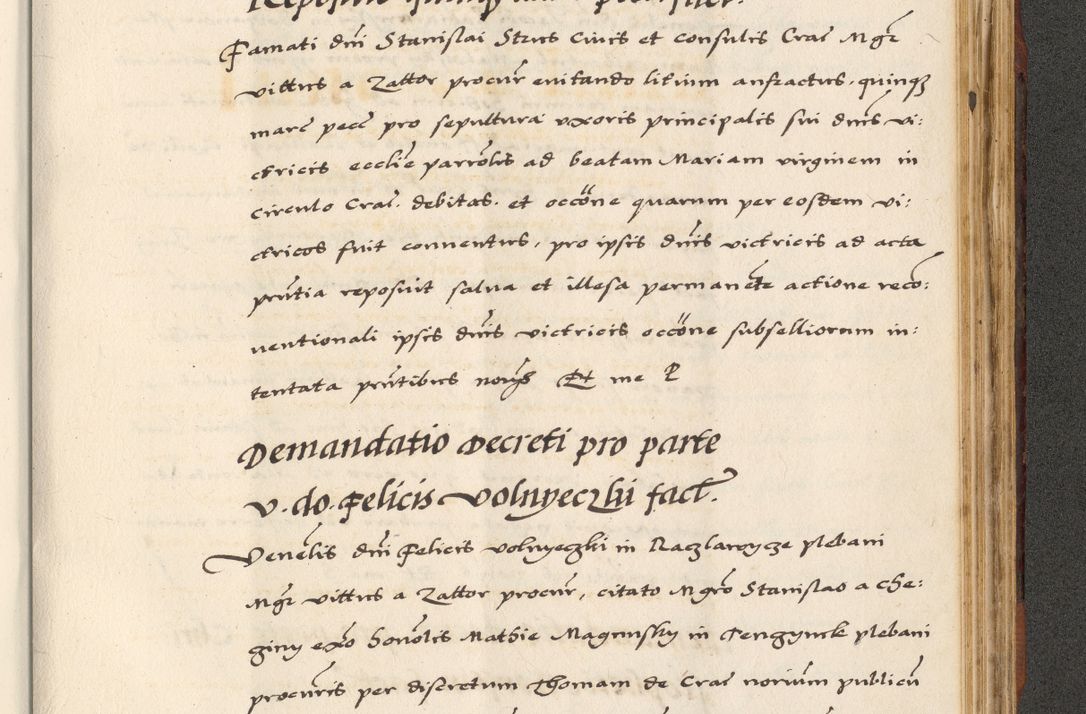 Famati dni Stanislai Strus Civis et consulis Crac Mgr
vittus a Zattor procur evitando litium anfractus, quinq
marc pecc pro sepultura uxoris principalis sui dnis vi:
ctricis ecclie parrolis ad beatam Mariam virginem in
circulo Crac. debitas. et occone quarum per eosdem vi:
ctricos fuit conventus, pro ipsis dnis victricis ad acta
prntia reposuit salva et illesa permanete actione reco:
nventionali ipsis dnis victricis occone subselliorum in:
tentata prntibus Et me P
Demandatio Decreti pro parte
v. do. Felicis Volnyeczkii fact.
Venelis dni Felicis volnyeczki in Raczlawycze plebani
Mgr vittus a Zattor procur, citato Mgro Stanislao a Che:
giny exo honolis Mathie Magnusky in Tengynck plebani
procuris per discretum Thomam de Crac norium publicu